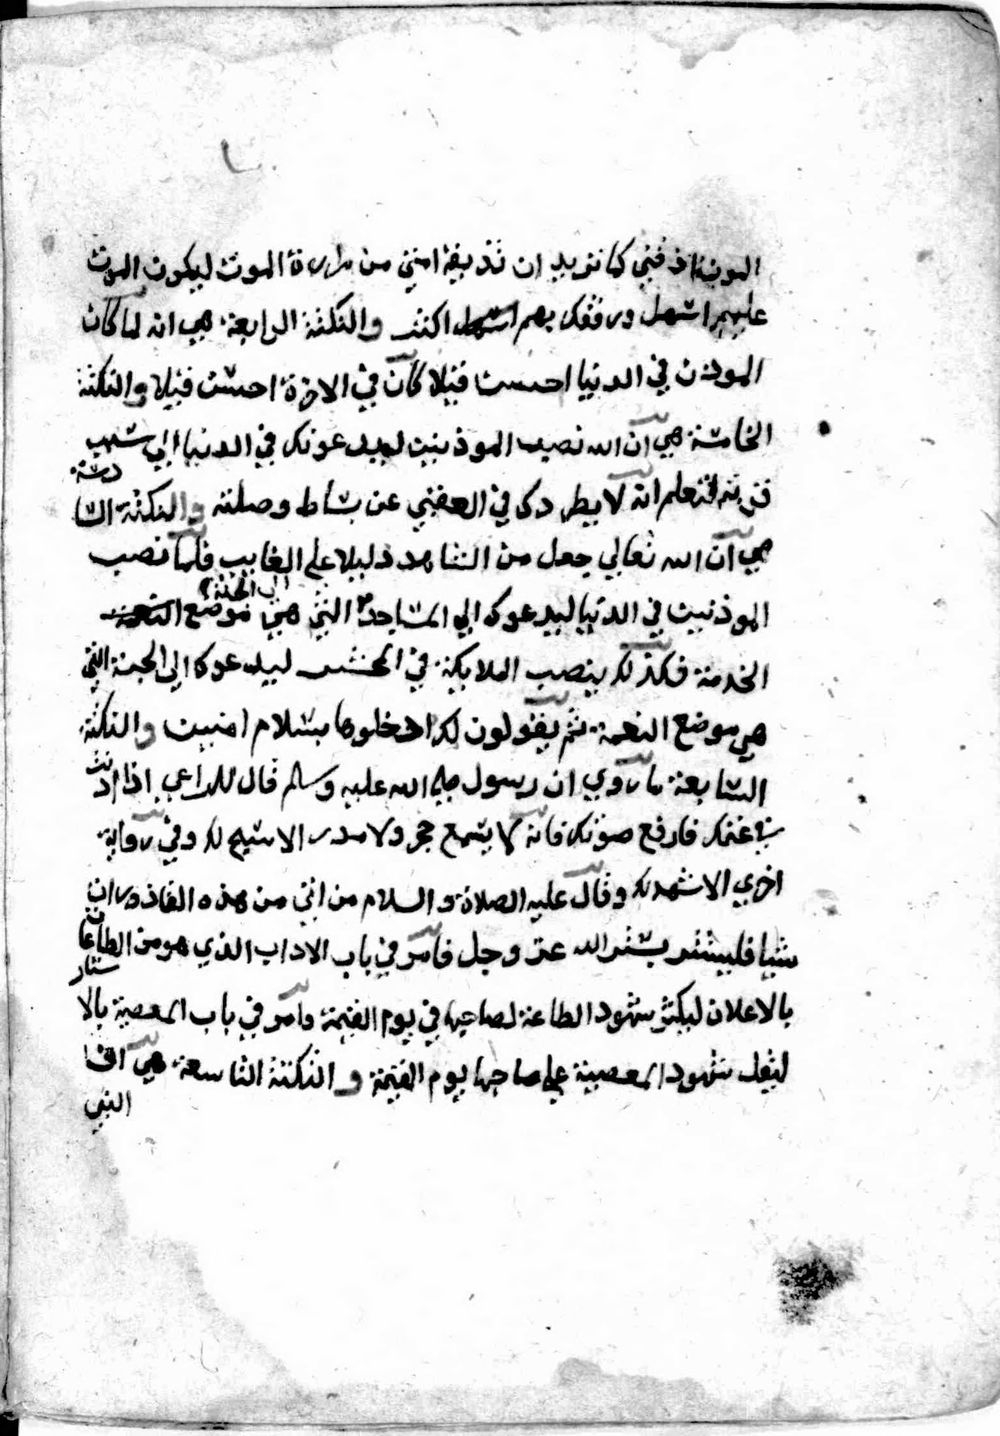 الموت اذقني كما تريد ان تذيقه امتي من مرارة الموت ليكون الموت
عليهم اسهل ورفقك بهم اكثر والنكتة الرابعة هي انه لما كان
الموذن في الدنيا احسن قيلا كان في الاخرة احسن قيلا والنكتة
الخامسة هي ان الله نصب الموذنين ليدعونك في الدنيا الي
قربته لتعلم انه لا يطردك في العقبي عن بساط وصلته والنكتة السا
دسة
هي ان الله تعالي جعل من الشاهد دليلا علي الغايب فلما نصب
الموذنين في الدنيا ليدعوك الي المساجد التي هي موضع
الي الجنة
الخدمة فكذلك ينصب الملايكة في المحشر ليدعوك الي الجنة التي
هي موضع النعمة ثم يقولون لك ادخلوها بسلام امنين والنكتة
السابعة ما روي ان رسول صلي الله عليه وسلم قال للراعي اذا اذنت
في غنمك فارفع صوتك فانه لا يسمع حجر ولا مدر الا سبح لك وفي رواية
اخري الا شهد لك وقال عليه الصلاة والسلام من اتي من هذه القاذورات
شيا فليستتر بستر الله عز وجل فامر في باب الاداب الذي هو من الطاعات
بالاعلان ليكثر شهود الطاعة لصاحبها في يوم القيمة وامر في باب المعصية بالا
ستار
ليقل شهود المعصية علي صاحبها يوم القيمة والنكتة التاسعة هي ان
النبي